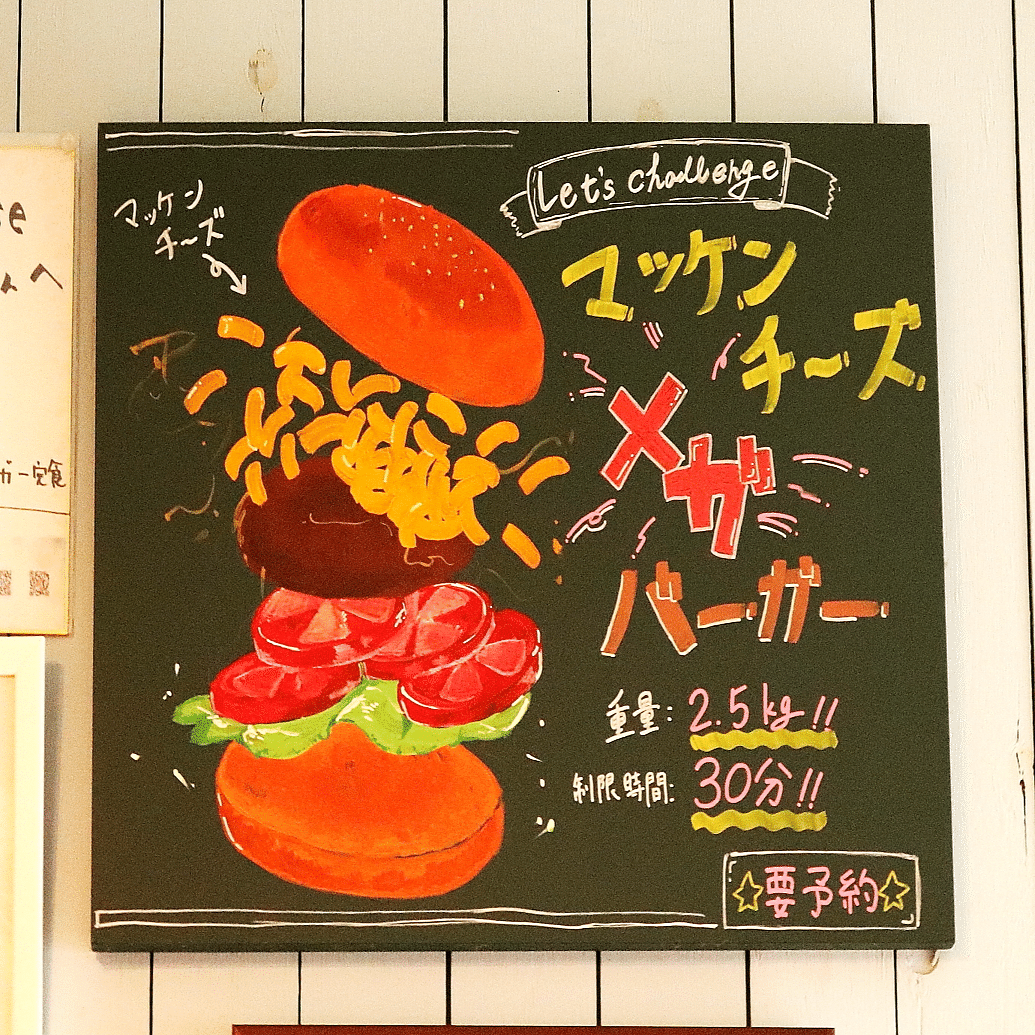 Let's challenge
マッケン
チーズ
マッケン
チーズ
メガ
バーガー
重量: 2.5kg!!
制限時間: 30分!!
☆要予約☆
se
んへ
ガー定食